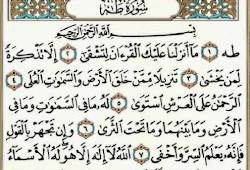 سورة طه
بسم الله الرحمن الرحيم
طه ١ ما أنزلنا عليك القرءان لتشقى ٢ إلا تذكرة
لمن يخشى ٣ تنزيلا ممن خلق الأرض والسموات العلى ٤
الرحمن على العرش استوى ٥ له ما في السموات وما في
الأرض وما بينهما وما تحت الثرى ٦ وإن تجهر بالقول
فإنه يعلم السر وأخفى ٧ الله لا إله إلا هو له الأسماء